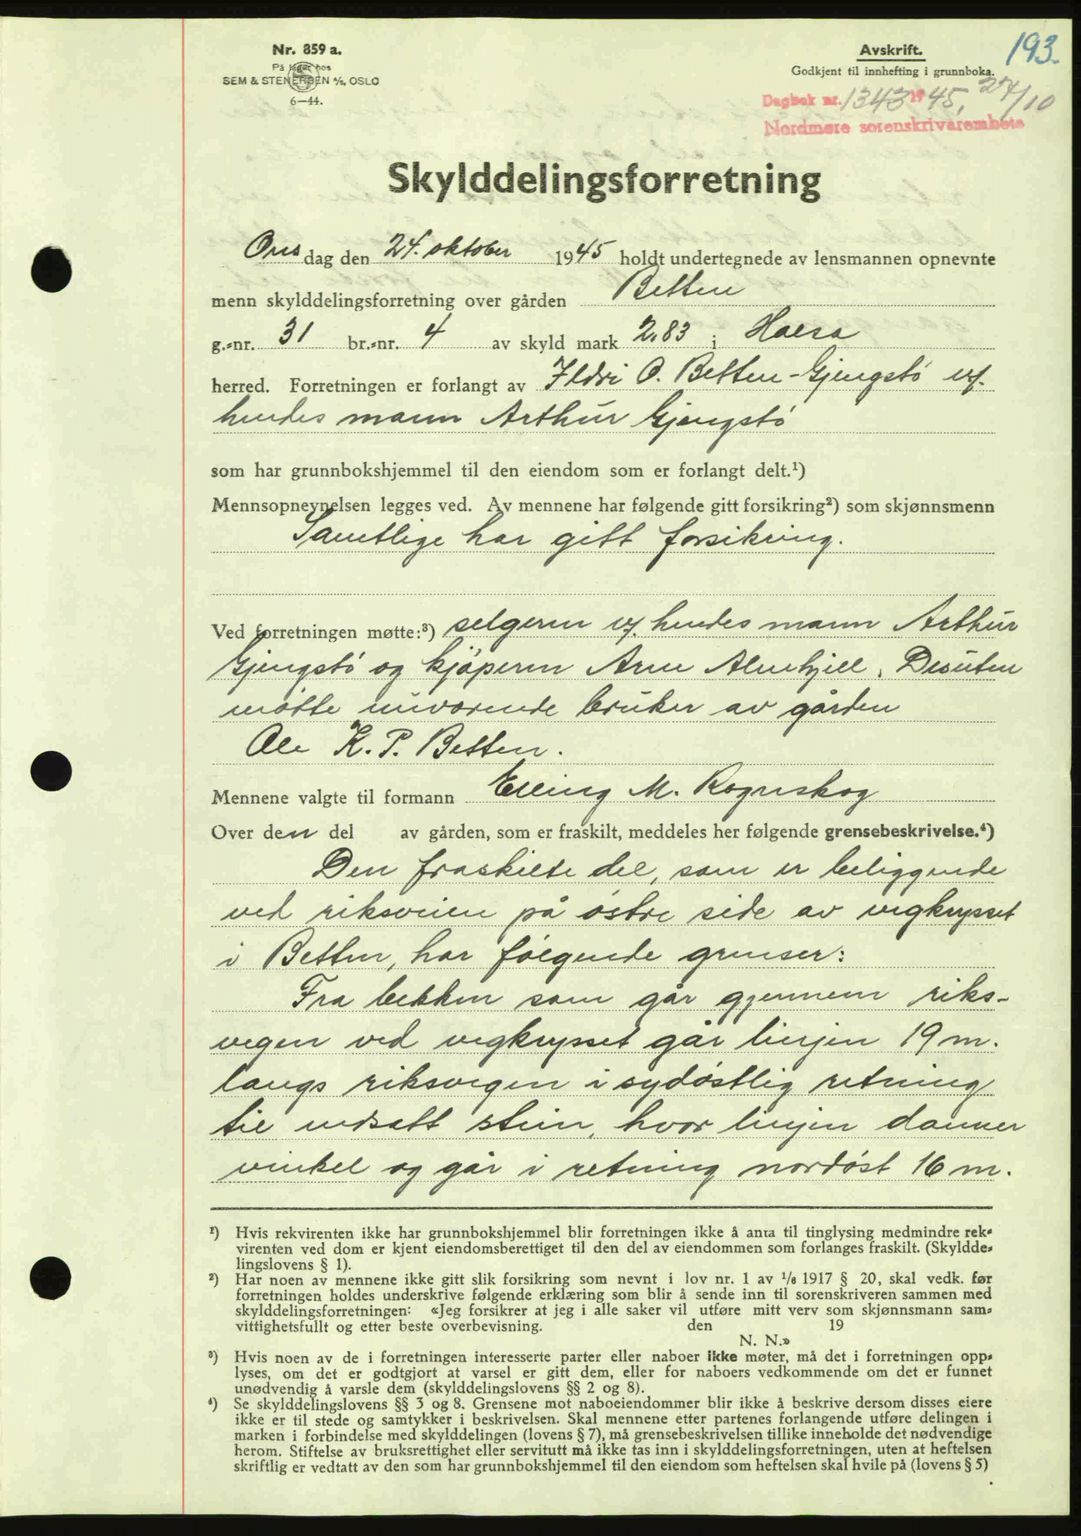 Nr. 859 a.
På lager hos
SEM & STENERSEN A/S, OSLO
6—44.
Avskrift.
Godkjent til innhefting i grunnboka.
193.
Dagbok nr. 1343 1945, 27/10
Nordmøre sorenskrivarembete
Skylddelingsforretning
Onsdag den 24. oktober 1945 holdt undertegnede av lensmannen opnevnte
menn skylddelingsforretning over gården Betten
g.-nr. 31 br.-nr. 4 av skyld mark 2.83 i Halsa
herred. Forretningen er forlangt av Ildri O. Betten-Gjengstö v/
hendes mann Arthur Gjengstö
som har grunnbokshjemmel til den eiendom som er forlangt delt.¹)
Mennsopnevnelsen legges ved. Av mennene har følgende gitt forsikring²) som skjønnsmenn
Samtlige har gitt forsikring.
Ved forretningen møtte:³) selgeren v/ hendes mann Arthur
Gjengstö og kjöperen Arne Almhjell. Desuten
mötte nuværende bruker av gården
Ole K. P. Betten.
Mennene valgte til formann Elling M. Rognskog
Over den del av gården, som er fraskilt, meddeles her følgende grensebeskrivelse.⁴)
Den fraskilte del, som er beliggende
ved riksveien på östre side av vegkrysset
i Betten, har fölgende grenser:
Fra bekken som går gjennem riks-
vegen ved vegkrysset går linjen 19 m.
langs riksvegen i sydöstlig retning
til nedsatt stein, hvor linjen danner
vinkel og går i retning nordöst 16 m.
¹) Hvis rekvirenten ikke har grunnbokshjemmel blir forretningen ikke å anta til tinglysing medmindre rek-
virenten ved dom er kjent eiendomsberettiget til den del av eiendommen som forlanges fraskilt. (Skyldde-
lingslovens § 1).
²) Har noen av mennene ikke gitt slik forsikring som nevnt i lov nr. 1 av 1/6 1917 § 20, skal vedk. før
forretningen holdes underskrive følgende erklæring som blir å sende inn til sorenskriveren sammen med
skylddelingsforretningen: «Jeg forsikrer at jeg i alle saker vil utføre mitt verv som skjønnsmann sam-
vittighetsfullt og etter beste overbevisning. den 19
N. N.»
³) Hvis noen av de i forretningen interesserte parter eller naboer ikke møter, må det i forretningen opp-
lyses, om det er godtgjort at varsel er gitt dem, eller for naboers vedkommende om det er funnet
unødvendig å varsle dem (skylddelingslovens §§ 2 og 8).
⁴) Se skylddelingslovens §§ 3 og 8. Grensene mot naboeiendommer blir ikke å beskrive dersom disses eiere
ikke er til stede og samtykker i beskrivelsen. Skal mennene etter partenes forlangende utføre delingen i
marken i forbindelse med skylddelingen (lovens § 7), må grensebeskrivelsen tillike inneholde det nødvendige
herom. Stiftelse av bruksrettighet eller servitutt må ikke tas inn i skylddelingsforretningen, uten at heftelsen
skriftlig er vedtatt av den som har grunnbokshjemmel til den eiendom som heftelsen skal hvile på (lovens § 5)